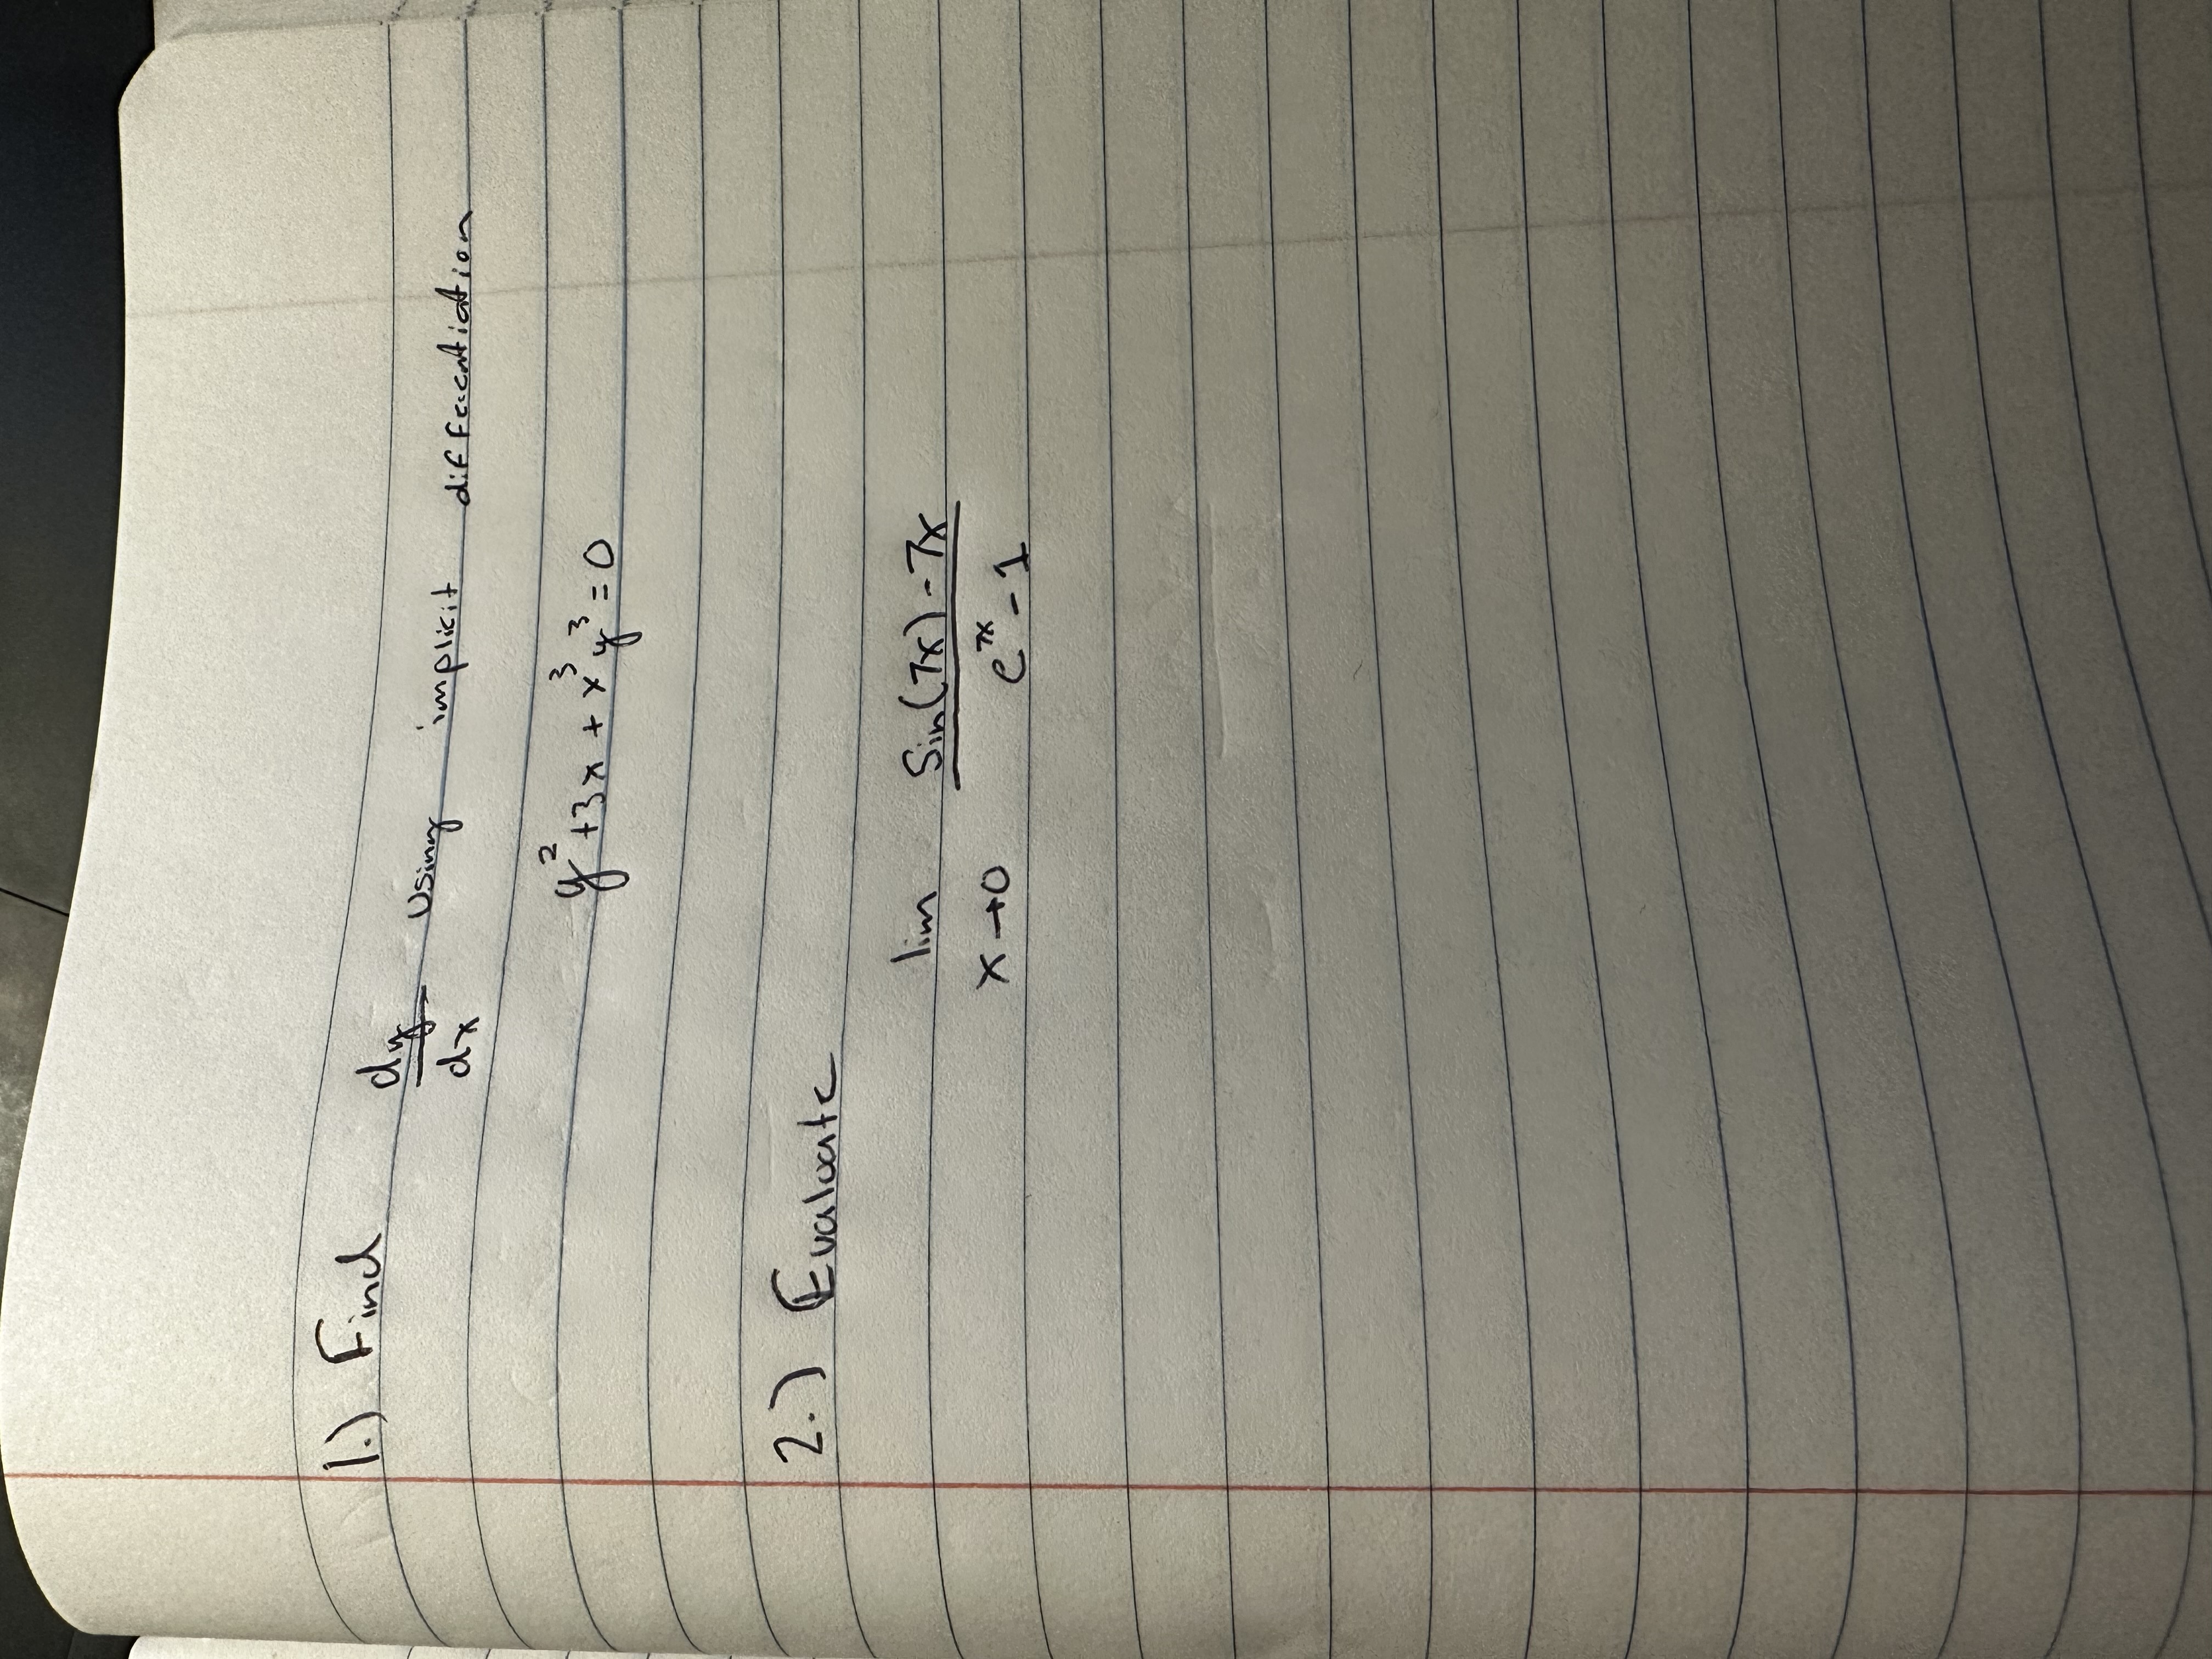 1.) Find dy/dx using implicit differentiation
y² + 3x + x³y³ = 0
2.) Evaluate
lim x→0 (Sin(7x) - 7x)/(e^(7x) - 1)